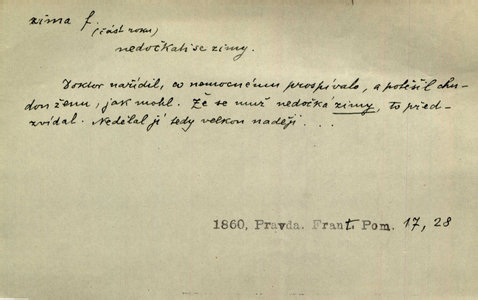 zima f.
(část roku)
nedočkati se zimy.
Doktor nařídil, co nemocnému prospívalo, a potěšil chu-
dou ženu, jak mohl. Že se muž nedočká zimy, to před-
zvídal. Nedělal jí tedy velkou naději . . .
1860, Pravda. Frant. Pom. 17, 28